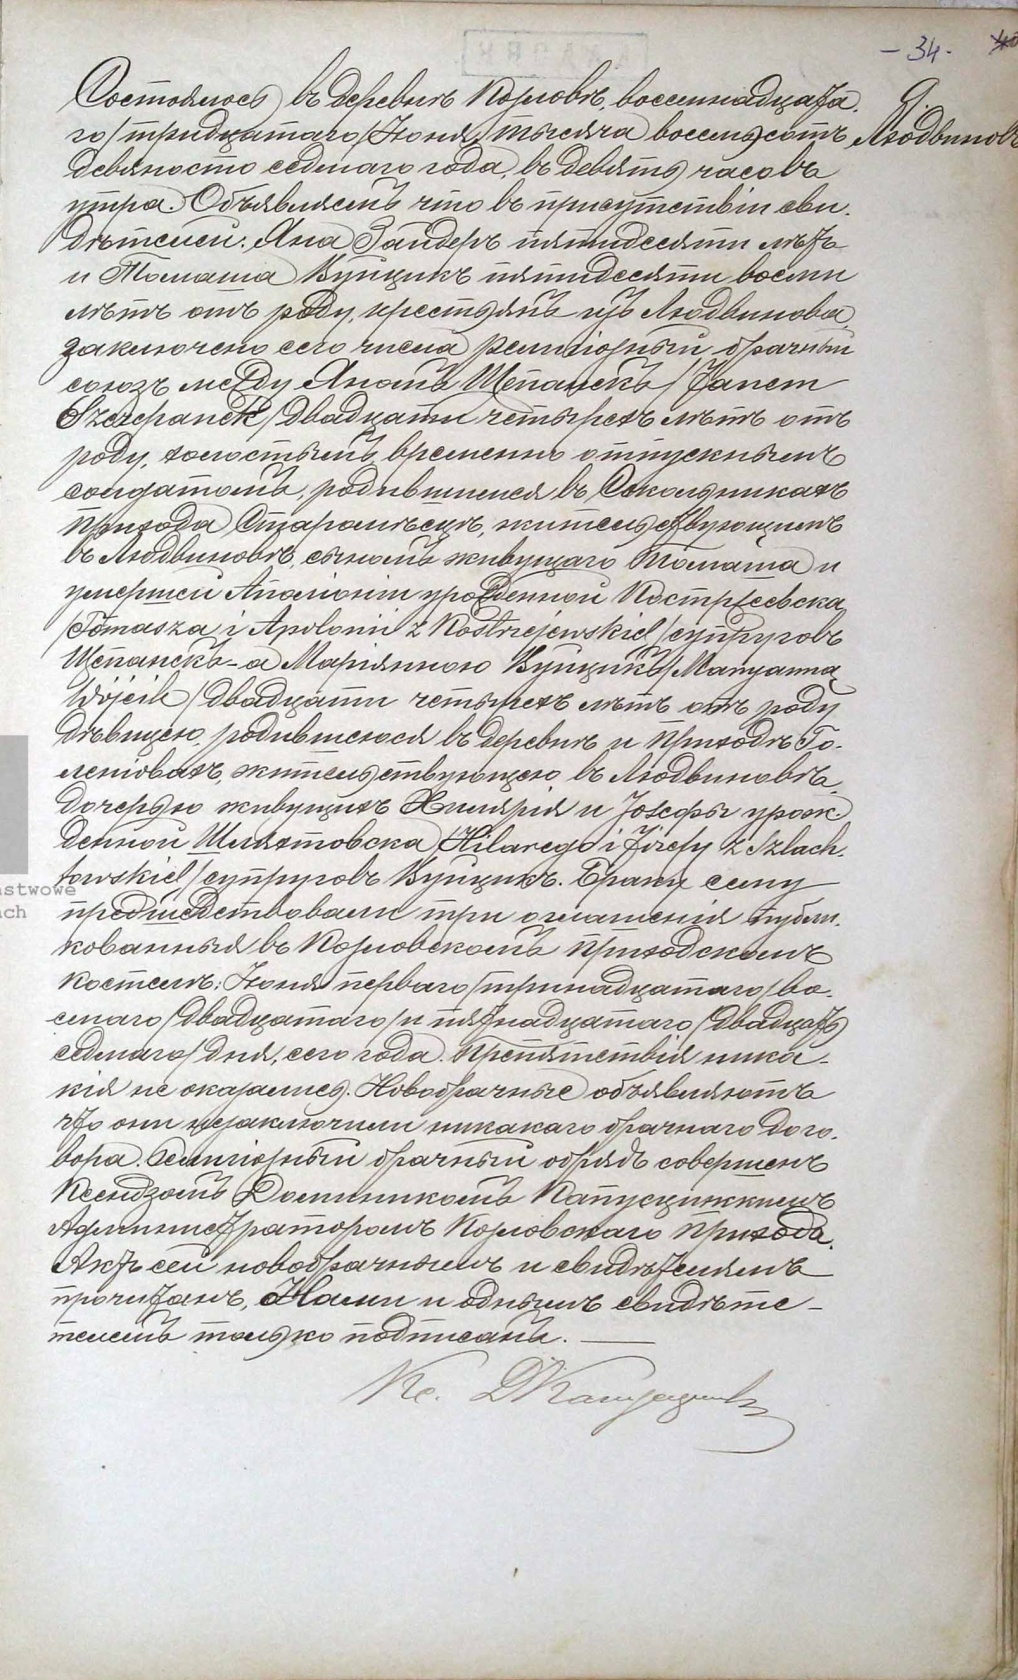 - 34 -
9.
Людвиновъ
Состоялось въ деревнѣ Козловѣ, восемнадцата-
го /тридцатаго/ Іюня, тысяча восемьсотъ
девяносто седьмаго года, въ девять часовъ
утра. Объявляемъ что въ присутствіи сви-
дѣтелей: Яна Зандеръ пятидесяти лѣтъ
и Томаша Вуйцикъ пятидесяти восьми
лѣтъ отъ роду, крестьянъ изъ Людвинова,
заключено сего числа религіозный брачный
союзъ между Яномъ Щепанекъ /Janem
Szczepanek/ двадцати четырехъ лѣтъ отъ
роду, холостымъ, временно отпускнымъ
солдатомъ, родившимся въ Сокольникахъ
прихода Старомѣсце, жительствующимъ
въ Людвиновѣ, сыномъ живущаго Томаша и
умершей Аполоніи урожденной Костржевска
/Tomasza i Apolonii z Kostrzejewskich/ супруговъ
Щепанекъ - а Маріянною Вуйцикъ /Maryanna
Wójcik/ двадцати четырехъ лѣтъ отъ роду
дѣвицею, родившеюся въ деревнѣ и приходѣ Го-
леніовахъ, жительствующею въ Людвиновѣ,
дочерью живущихъ Хилярія и Іозефы урож-
денной Шляхтовска /Hilarego i Józefy z Szlach-
towskich/ супруговъ Вуйцикъ. Браку сему
предшествовали три оглашенія публи-
кованныя въ Козловскомъ приходскомъ
костелѣ: Іюня перваго /тринадцатаго/ во-
сьмаго /двадцатаго/ и пятнадцатаго /двадцать
седьмаго/ дня, сего года. Препятствія ника-
кія не оказались. Новобрачные объявляютъ
что они незаключили никакаго брачнаго дого-
вора. Религіозный брачный обрядъ совершенъ
Ксендзомъ Доминикомъ
Администраторомъ Козловскаго прихода.
Актъ сей новобрачнымъ и свидѣтелямъ
прочитанъ, Нами и однымъ свидѣте-
телемъ только подписанъ.
Кс. Д